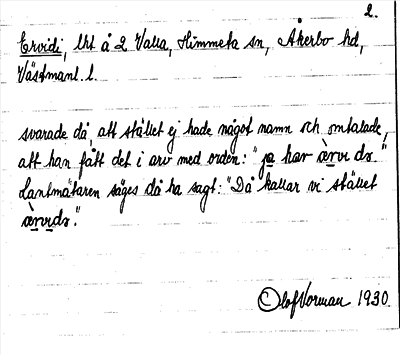 2.
Ervidi, lht å 2 Valla, Himmeta sn, Åkerbo hd,
Västmanl. l.
svarade då, att stället ej hade något namn och omtalade,
att han fått det i arv med orden: "ja har ärvi dɘ."
Lantmätaren säges då ha sagt: "Då kallar vi stället
ärvidɘ."
Olof Norman 1930.